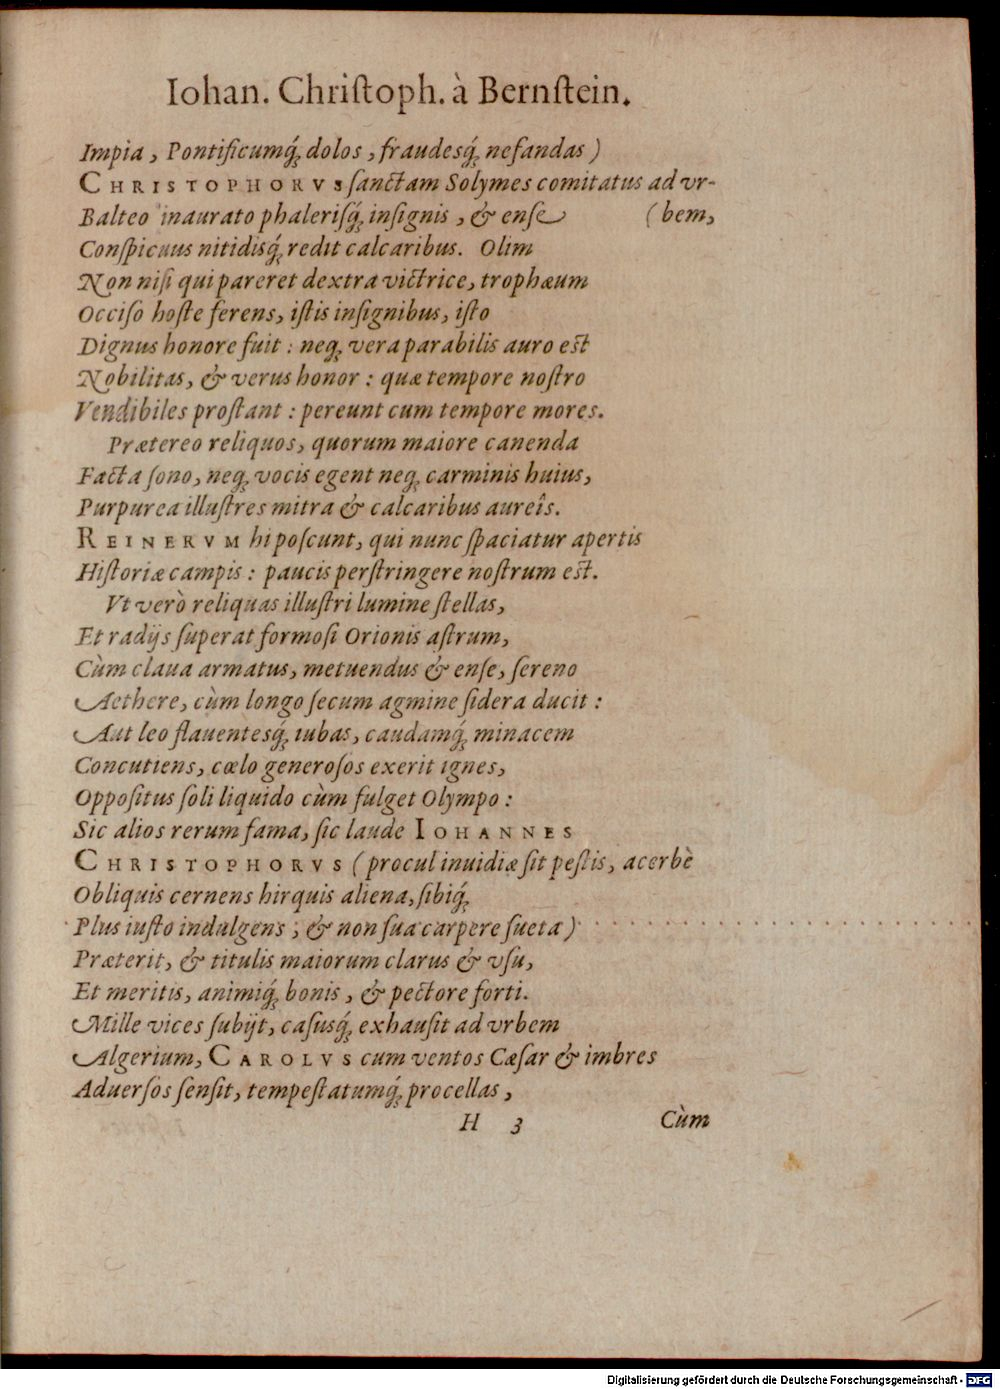 Iohan. Chriſtoph. à Bernſtein.
Impia, Pontificumq́; dolos, fraudesq́; nefandas)
CHRISTOPHORVS ſanctam Solymes comitatus ad vr-
Balteo inaurato phalerisq́; inſignis, & enſe (bem,
Conſpicuus nitidisq́; redit calcaribus. Olim
Non niſi qui pareret dextra victrice, trophæum
Occiſo hoſte ferens, iſtis inſignibus, iſto
Dignus honore fuit: neq; vera parabilis auro est
Nobilitas, & verus honor: quæ tempore noſtro
Vendibiles proſtant: pereunt cum tempore mores.
Prætereo reliquos, quorum maiore canenda
Facta ſono, neq; vocis egent neq; carminis huius,
Purpurea illuſtres mitra & calcaribus aureîs.
REINERVM hi poſcunt, qui nunc ſpaciatur apertis
Hiſtoriæ campis: paucis perſtringere noſtrum est.
Vt verò reliquas illuſtri lumine ſtellas,
Et radijs ſuperat formoſi Orionis aſtrum,
Cùm claua armatus, metuendus & enſe, ſereno
Aethere, cùm longo ſecum agmine ſidera ducit:
Aut leo flauentesq́; iubas, caudamq́; minacem
Concutiens, cœlo generoſos exerit ignes,
Oppoſitus ſoli liquido cùm fulget Olympo:
Sic alios rerum fama, ſic laude IOHANNES
CHRISTOPHORVS (procul inuidiæ ſit peſtis, acerbè
Obliquis cernens hirquis aliena, ſibiq́;
Plus iuſto indulgens, & non ſua carpere ſueta)
Præterit, & titulis maiorum clarus & vſu,
Et meritis, animiq́; bonis, & pectore forti.
Mille vices ſubijt, caſusq́; exhauſit ad vrbem
Algerium, CAROLVS cum ventos Cæſar & imbres
Aduerſos ſenſit, tempeſtatumq́; procellas,
H 3 Cùm
Digitalisierung gefördert durch die Deutsche Forschungsgemeinschaft - DFG